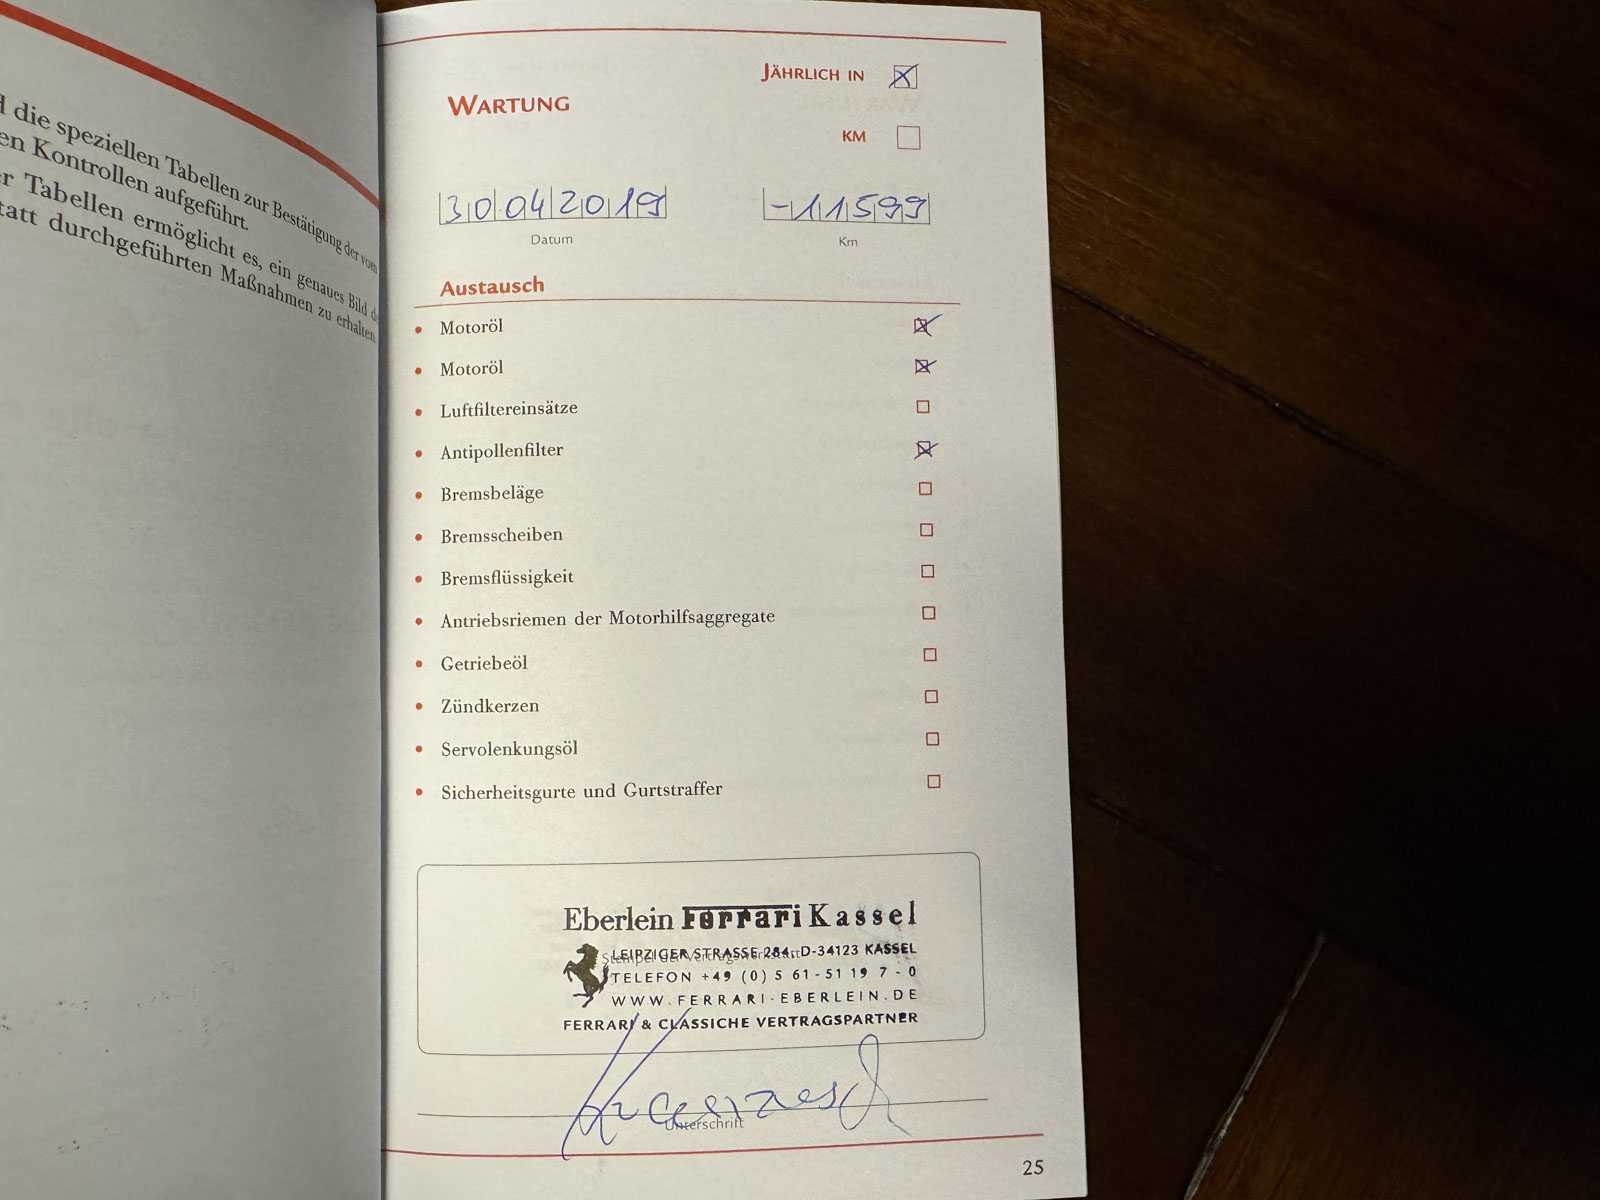 d die speziellen Tabellen zur Bestätigung der vom
en Kontrollen aufgeführt.
r Tabellen ermöglicht es, ein genaues Bild d
tatt durchgeführten Maßnahmen zu erhalten.
JÄHRLICH IN
WARTUNG
KM
30 04 2019
-11599
Datum
Km
Austausch
• Motoröl
• Motoröl
• Luftfiltereinsätze
• Antipollenfilter
• Bremsbeläge
• Bremsscheiben
• Bremsflüssigkeit
• Antriebsriemen der Motorhilfsaggregate
• Getriebeöl
• Zündkerzen
• Servolenkungsöl
• Sicherheitsgurte und Gurtstraffer
Eberlein Ferrari Kassel
LEIPZIGER STRASSE 284, D-34123 KASSEL
Stempel der Vertragswerkstatt
TELEFON +49 (0) 5 61-51 19 7-0
WWW.FERRARI-EBERLEIN.DE
FERRARI & CLASSICHE VERTRAGSPARTNER
Unterschrift
25